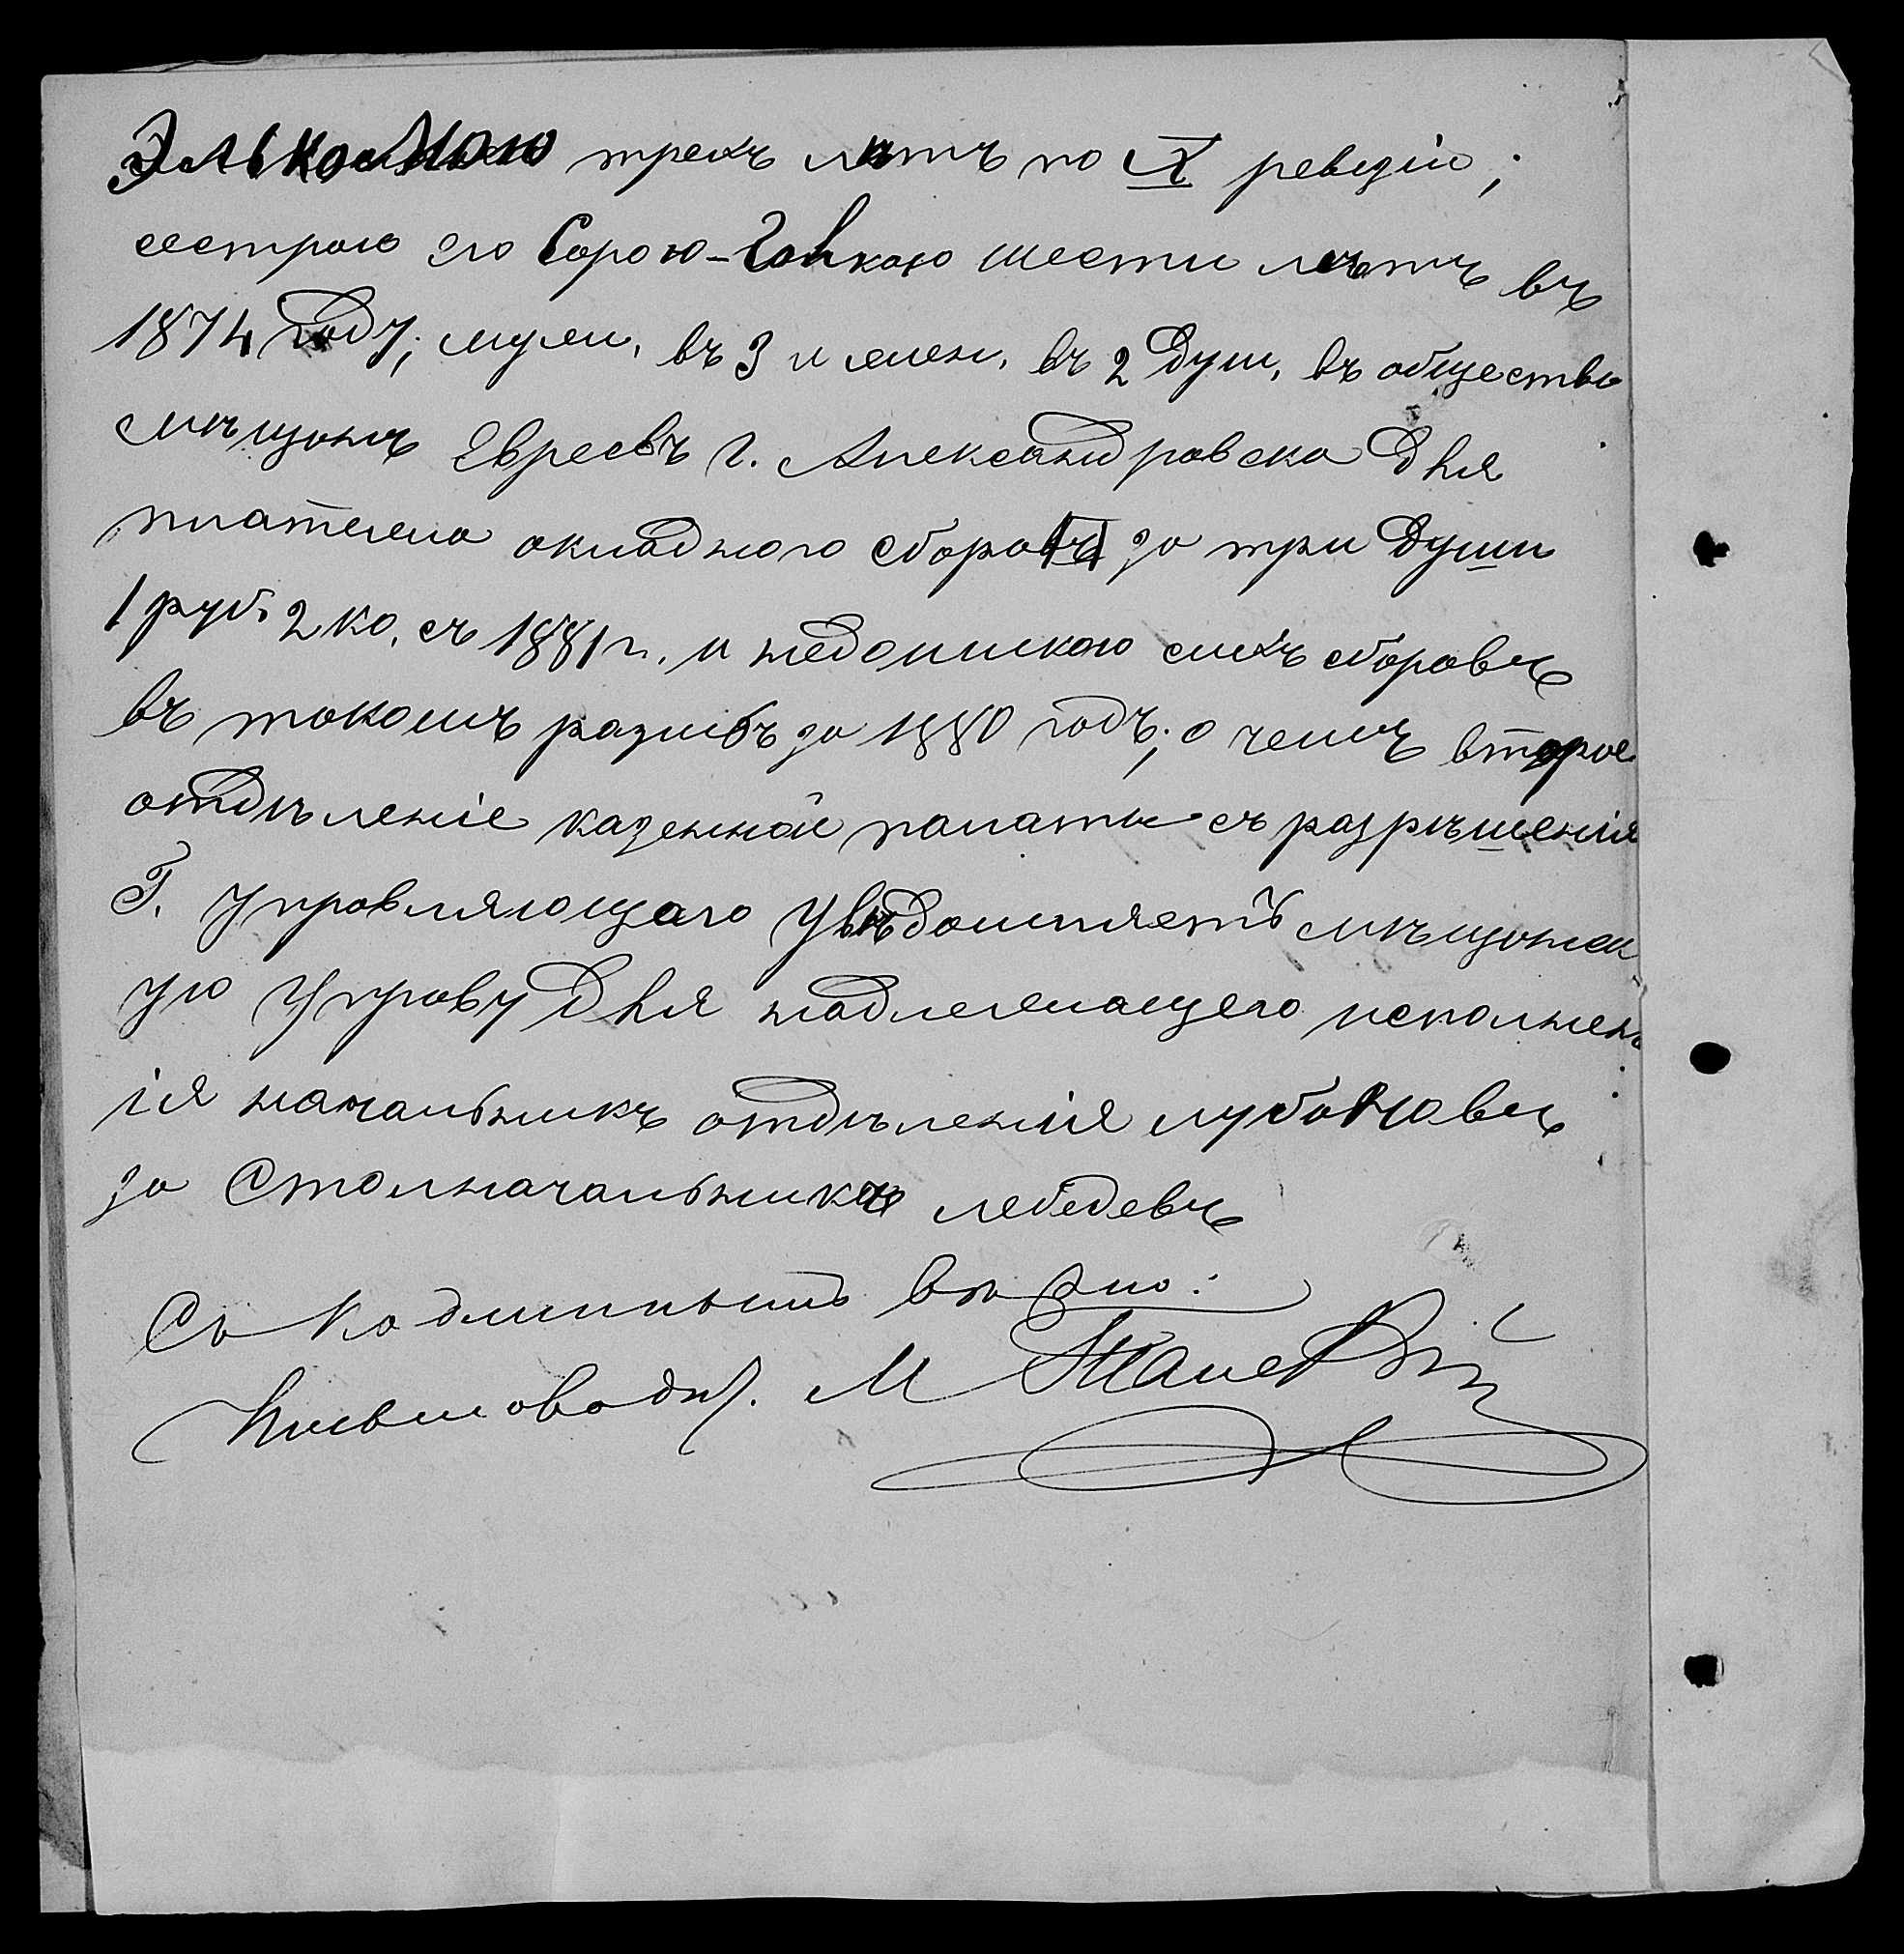 трехъ лѣтъ по X ревизіи;
сестрою его Сорою-Ганкою шести лѣтъ въ
1874 году; муж. въ 3 и жен. въ 2 душ. въ общество
мѣщанъ Евреевъ г. Александровска для
платежа окладного сборовъ за три души
1 руб. 2 ко. съ 1881 г. и недоимкою сихъ сборовъ
въ такомъ размѣъ за 1880 годъ; о чемъ второе
отдѣленіе казенной палаты съ разрѣшенія
Г. Управляющаго увѣдомляетъ мѣщанск
ую Управу для надлежащаго исполнен
ія начальникъ отдѣленія
за Столначальника Лебедевъ
Съ подлиннымъ вѣрно:
Письмовод. М